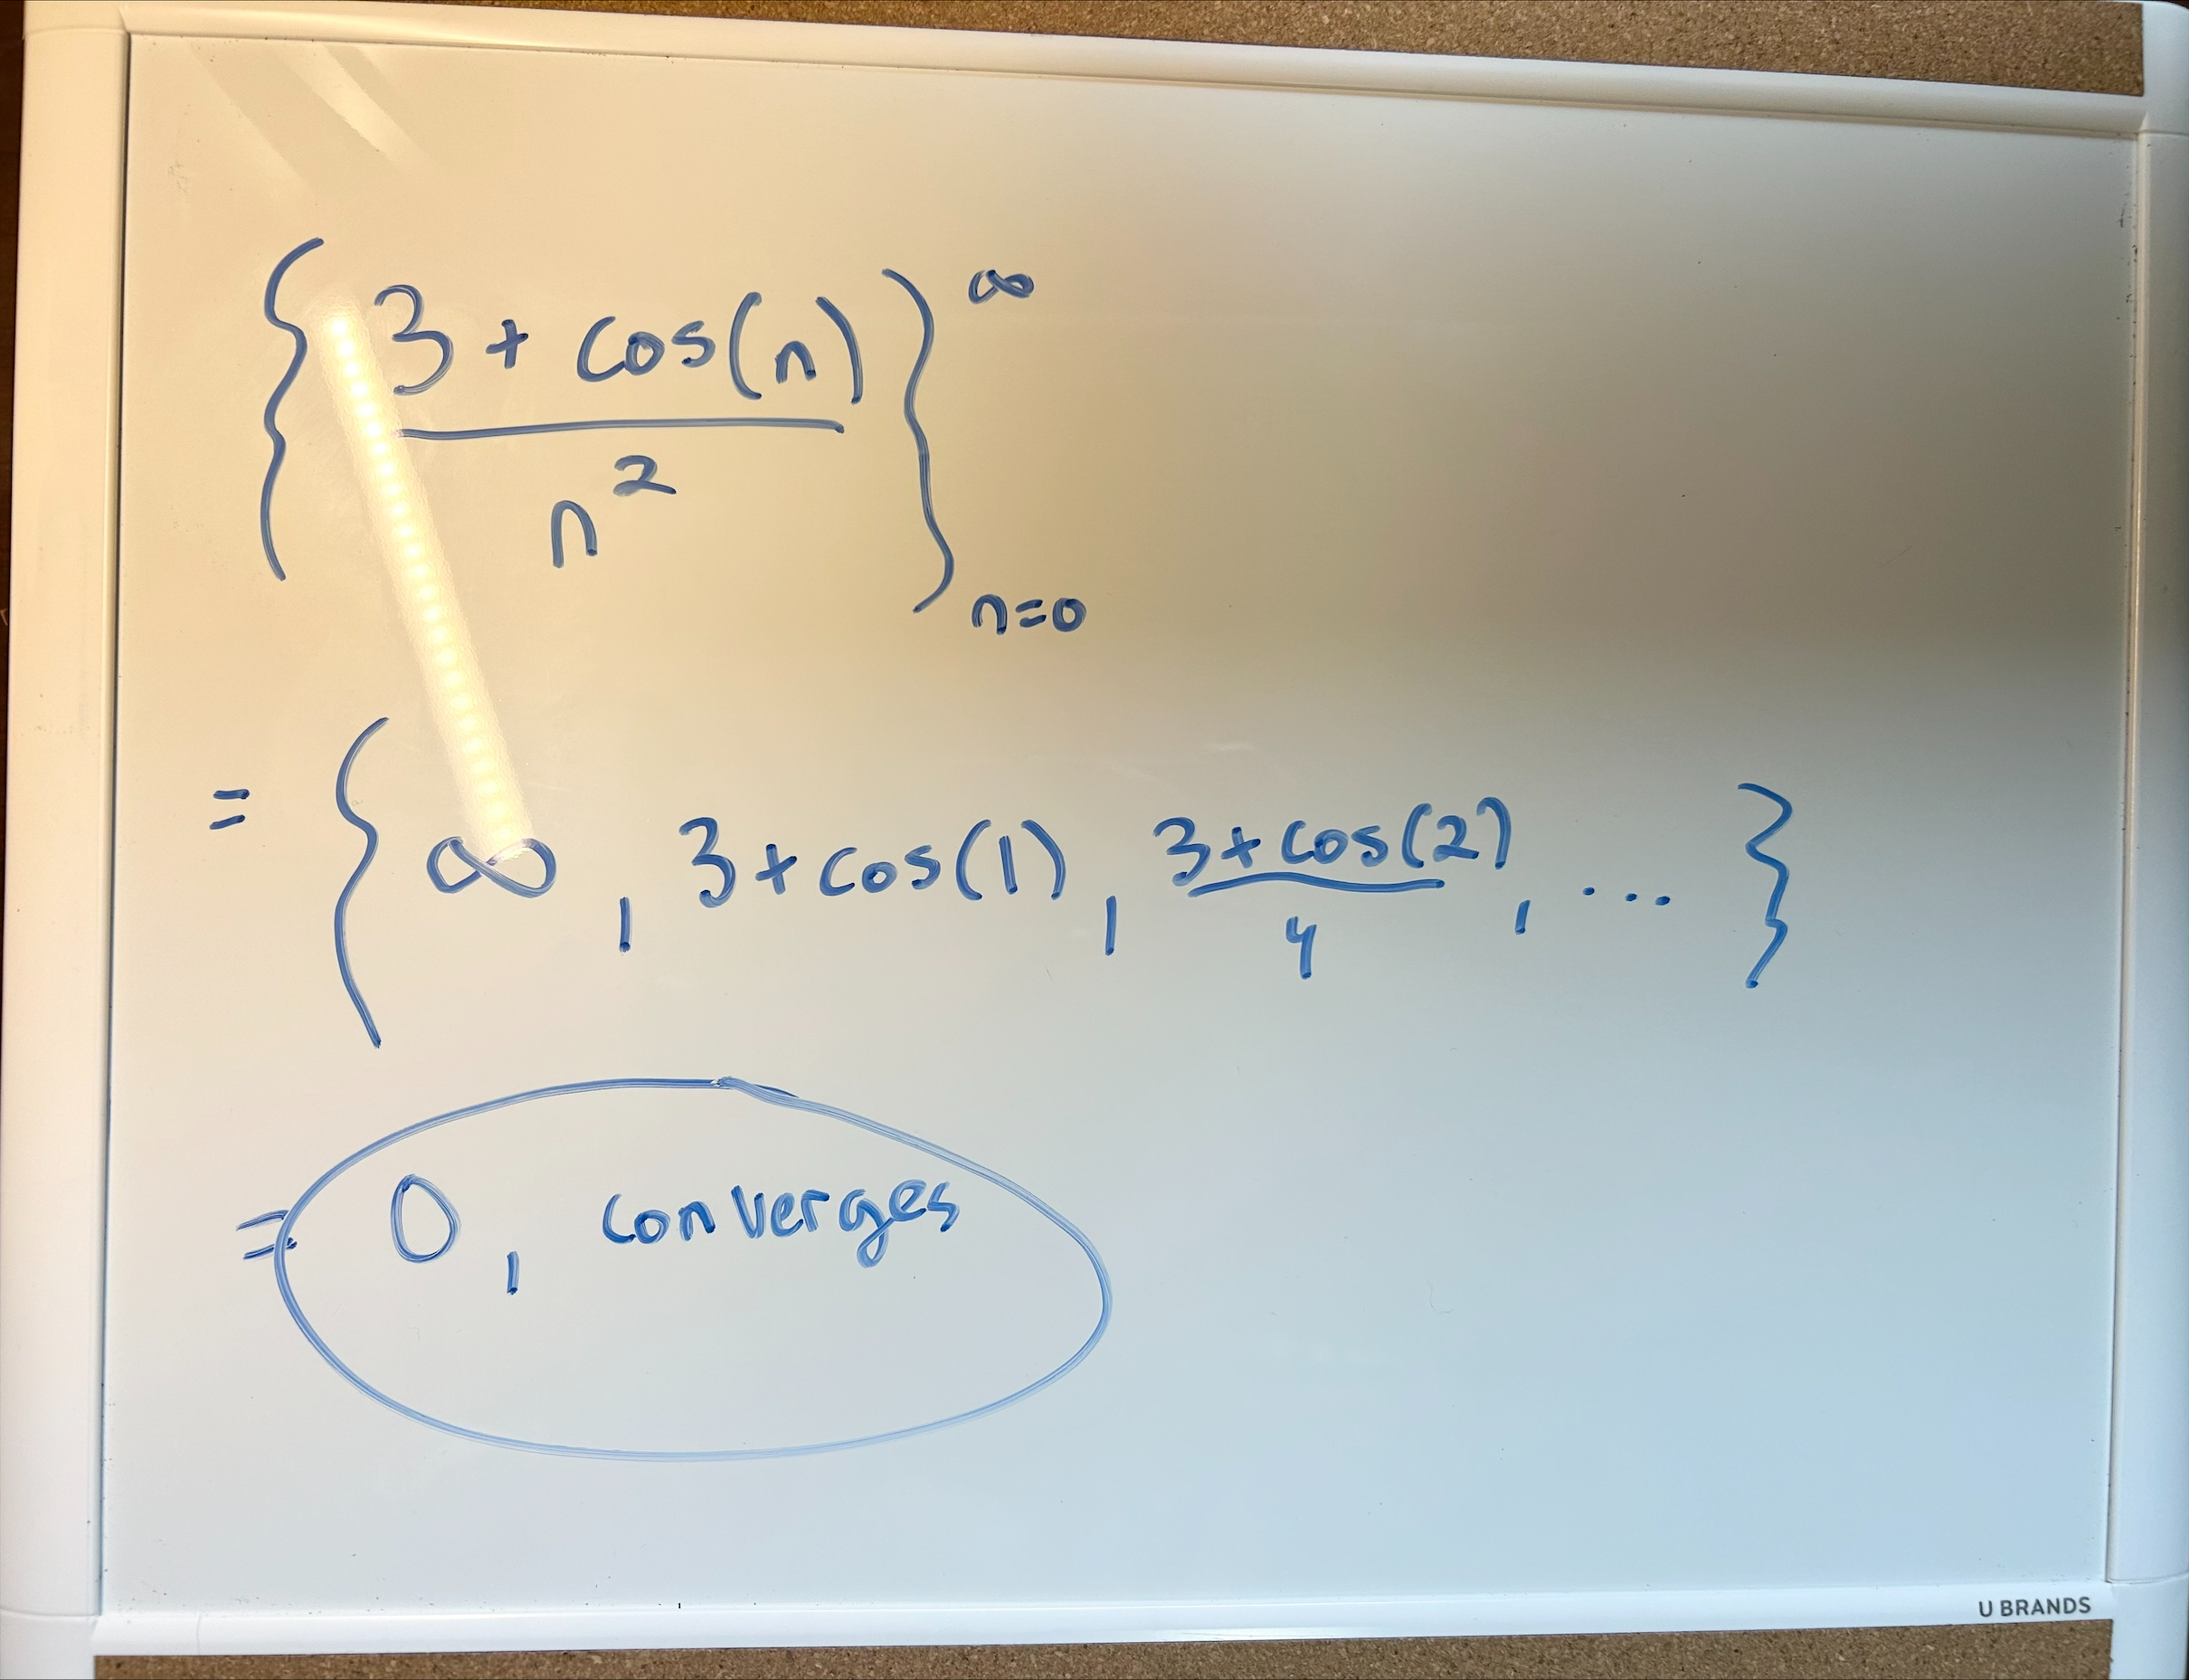 { (3 + cos(n)) / n² }^∞_{n=0}
= { ∞, 3 + cos(1), (3 + cos(2)) / 4, ... }
= 0, converges
U BRANDS